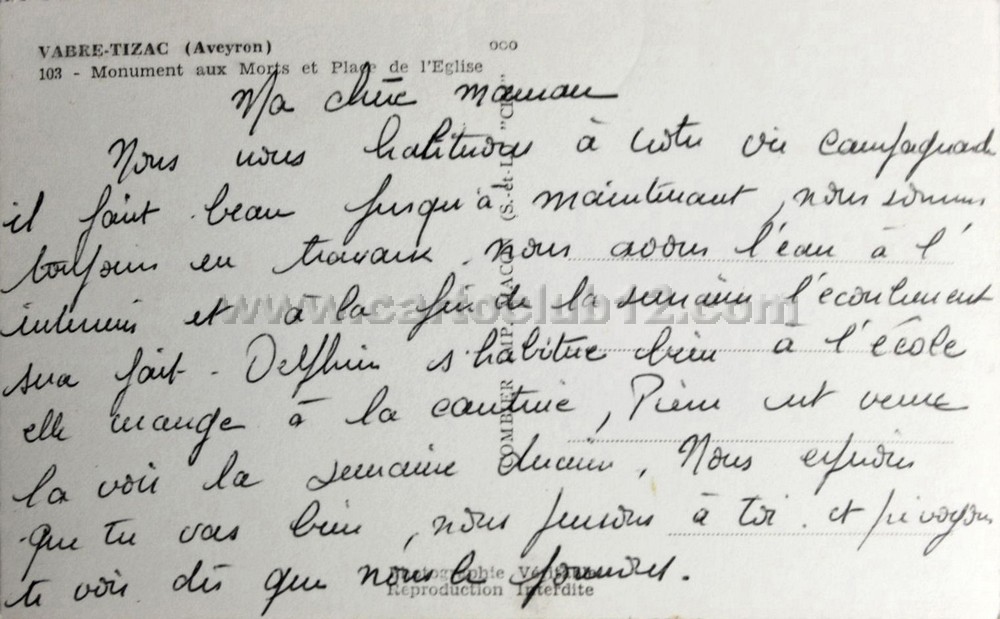 VABRE-TIZAC (Aveyron)
103 - Monument aux Morts et Place de l'Eglise
Ma chère maman
Nous nous habituons à notre vie campagnarde
il fait beau jusqu'à maintenant, nous sommes
toujours en travaux. nous avons l'eau à l'
intérieur et à la fin de la semaine l'écoulement
sera fait. Delphine s'habitue bien à l'école
elle mange à la cantine, Pierre est venu
la voir la semaine dernière. Nous espérons
que tu vas bien, nous pensons à toi. et prévoyons
te voir dès que nous le pourrons.
Photographie Véritable
Reproduction Interdite
COMBIER IMP. MACON (S.-et-L.) "CIM"
www.cartoclub12.com